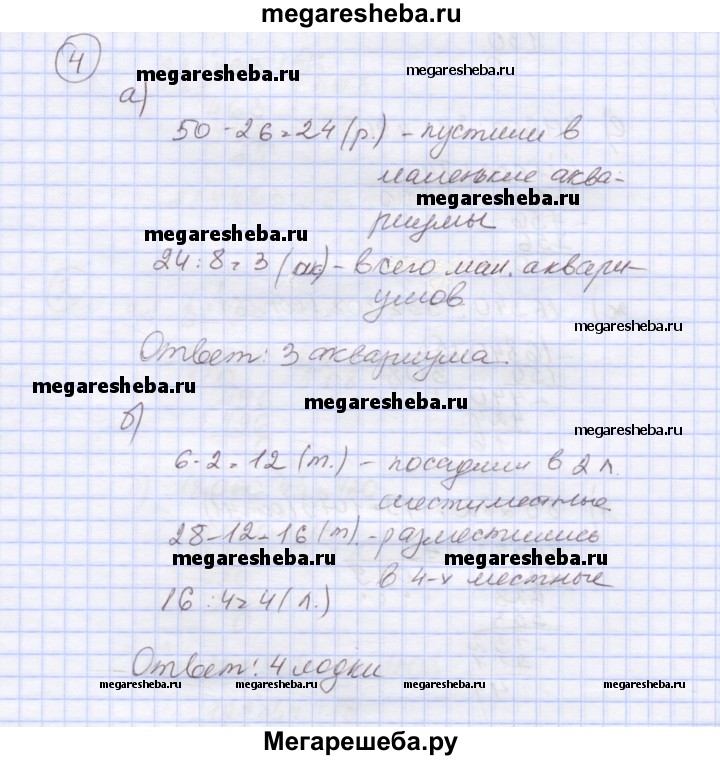 megaresheba.ru
4
megaresheba.ru megaresheba.ru
а)
50 - 26 = 24 (р.) - пустили в
маленькие аква-
megaresheba.ru
риумы
megaresheba.ru
24 : 8 = 3 (ак) - всего мал. аквари-
умов.
megaresheba.ru
Ответ: 3 аквариума.
megaresheba.ru
megaresheba.ru
б)
megaresheba.ru
6 · 2 = 12 (т.) - посадили в 2 л.
шестиместные.
28 - 12 = 16 (т). - разместились
megaresheba.ru megaresheba.ru
в 4-х местные
16 : 4 = 4 (л.)
Ответ: 4 лодки
megaresheba.ru megaresheba.ru megaresheba.ru megaresheba.ru
Мегарешеба.ру